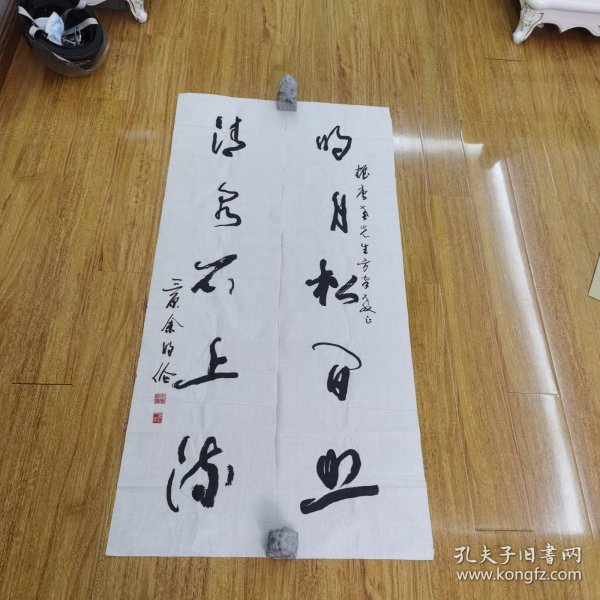 明月松间照
清泉石上流
先生方家教正
三原余明伦
孔夫子旧书网
www.kongfz.com